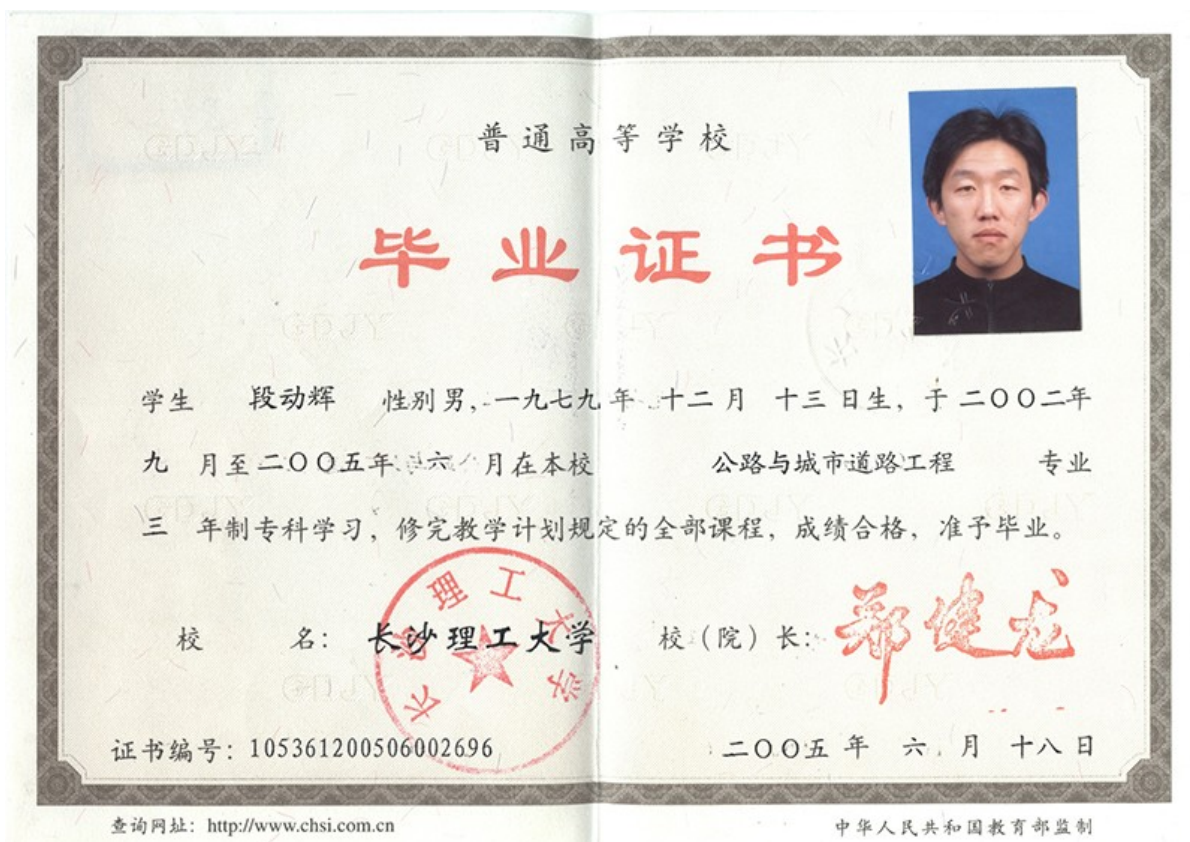 普通高等学校
毕业证书
学生 段动辉 性别男，一九七九年 十二月 十三日生，于二〇〇二年
九 月至二〇〇五年 六 月在本校 公路与城市道路工程 专业
三 年制专科学习，修完教学计划规定的全部课程，成绩合格，准予毕业。
长沙理工大学
校 名：长沙理工大学 校（院）长：郑健龙
证书编号：105361200506002696 二〇〇五年 六 月 十八日
查询网址：http://www.chsi.com.cn 中华人民共和国教育部监制